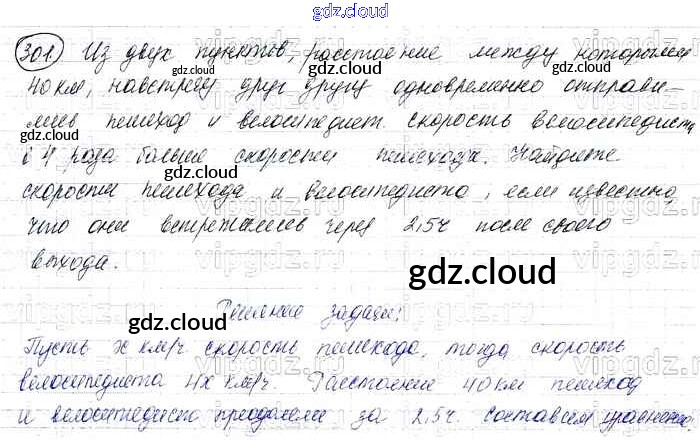 gdz.cloud
301 Из двух пунктов, расстояние между которыми
gdz.cloud
40 км, навстречу друг другу одновременно отправи-
лись пешеход и велосипедист. скорость велосипедиста
в 4 раза больше скорости пешехода. Найдите
скорости пешехода и велосипедиста, если известно,
что они встретились через 2,5ч после своего
выхода.
gdz.cloud
Решение задачи:
Пусть x км/ч скорость пешехода, тогда скорость
велосипедиста 4x км/ч. Расстояние 40 км пешеход
и велосипедист преодолели за 2,5ч. составим уравнение.